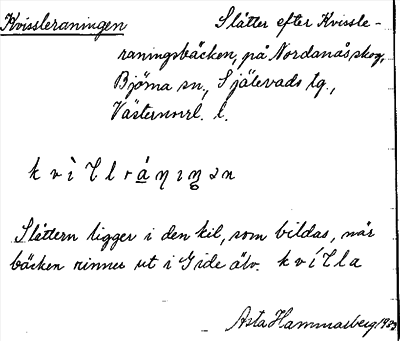 Kvissleraningen Slåtter efter Kvissle-
raningsbäcken, på Nordanås skog,
Björna sn., Själevads tg.,
Västernorrl. l.
Slåttern ligger i den kil, som bildas, när
bäcken rinner ut i Gide älv.
Asta Hammarberg